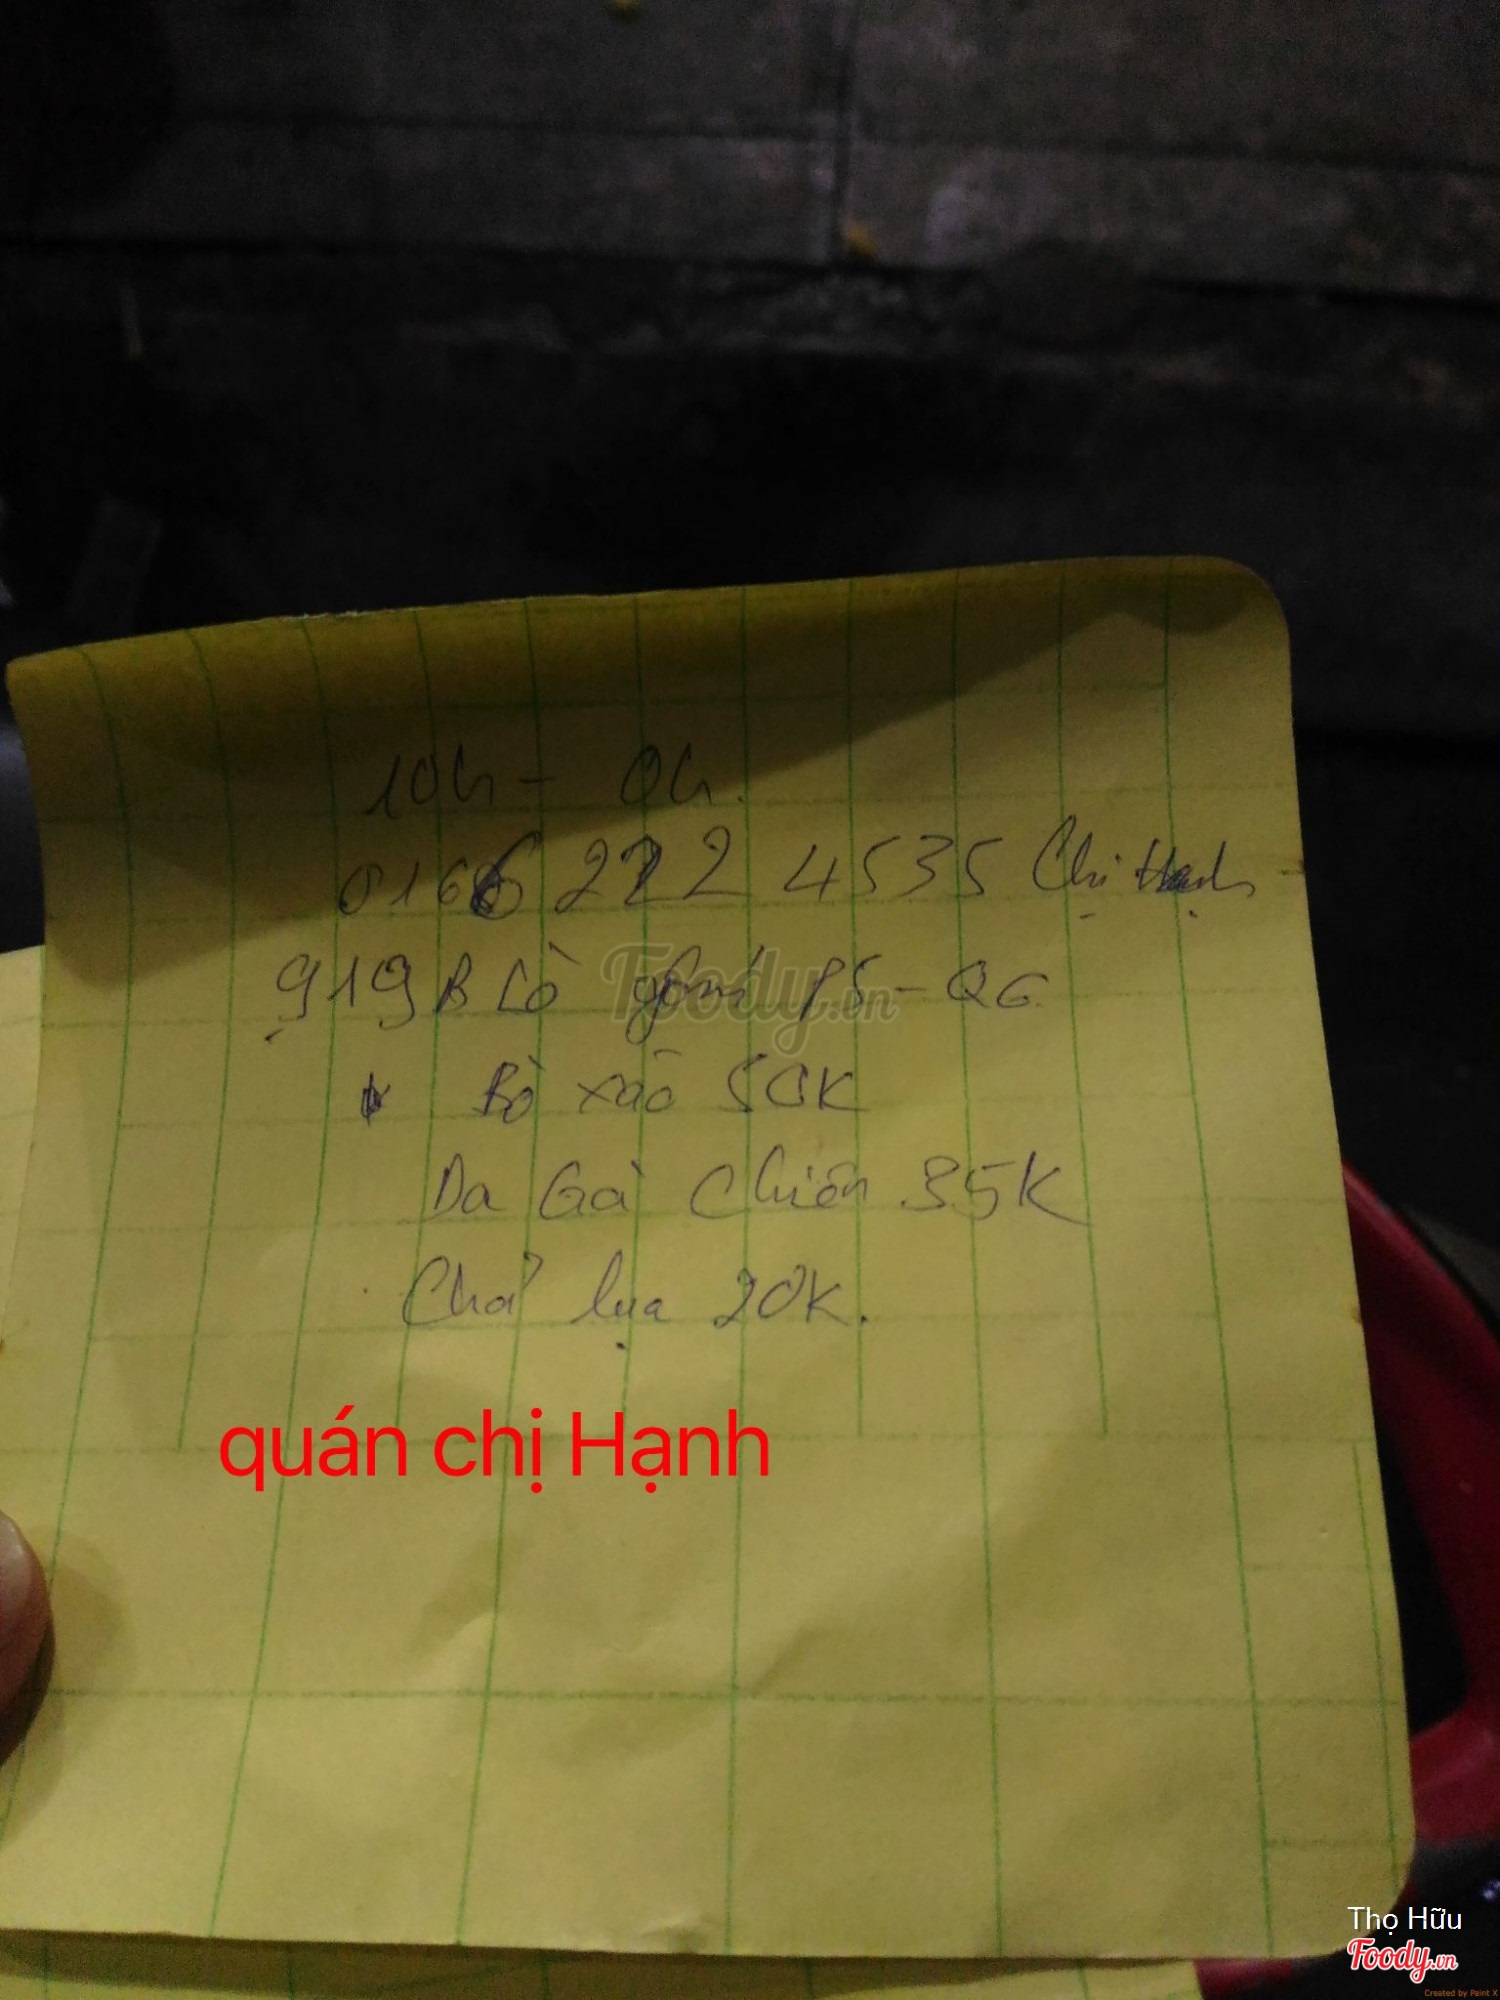 10h - 0h.
0166 222 4535 Chị Hạnh
919B Lò gốm P5 - Q6
Bò xào 50K
Da Gà chiên 35K
Chả lụa 20K.
Foody.vn
quán chị Hạnh
Thọ Hữu
Foody.vn
Created by Paint X